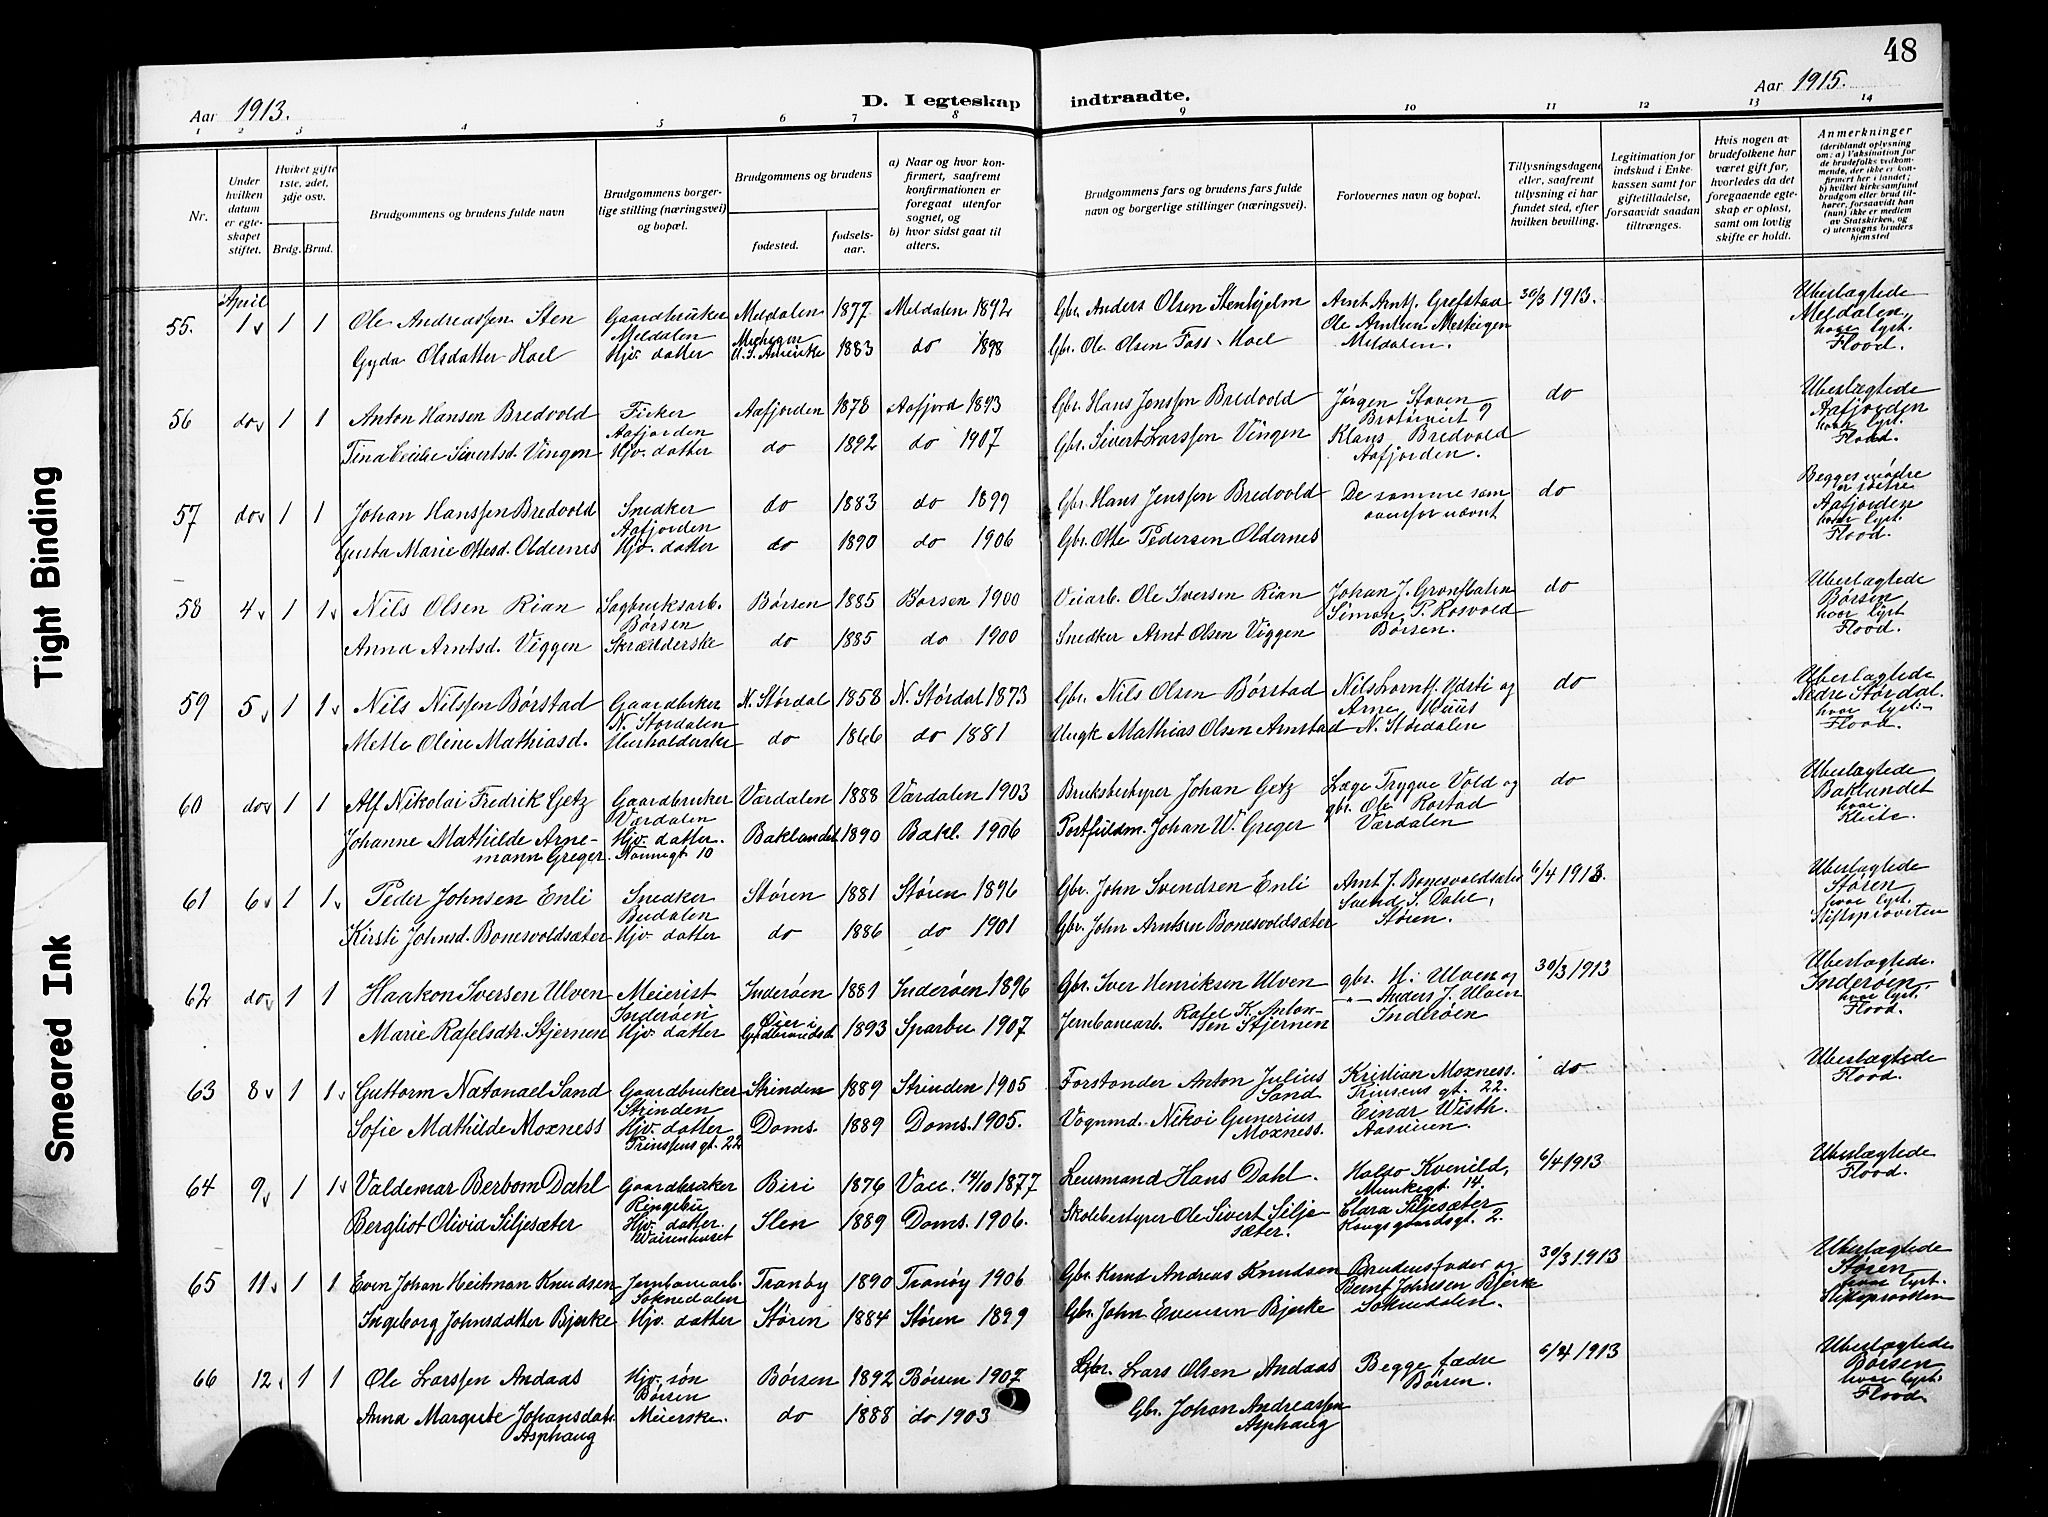 48
Aar 1913.
D. I egteskap indtraadte.
Aar 1915.
1 2 3 4 5 6 7 8 9 10 11 12 13 14
Nr.
Under hvilken datum er egteskapet stiftet.
Hvilket gifte 1ste, 2det, 3dje osv.
Brdg. Brud.
Brudgommens og brudens fulde navn
Brudgommens borgerlige stilling (næringsvei) og bopæl.
Brudgommens og brudens
fødested.
fødselsaar.
a) Naar og hvor konfirmert, saafremt konfirmationen er foregaat utenfor sognet, og
b) hvor sidst gaat til alters.
Brudgommens fars og brudens fars fulde navn og borgerlige stillinger (næringsvei).
Forlovernes navn og bopæl.
Tillysningsdagene eller, saafremt tillysning ei har fundet sted, efter hvilken bevilling.
Legitimation for indskud i Enkekassen samt for giftetilladelse, forsaavidt saadan tiltrænges.
Hvis nogen av brudefolkene har været gift før, hvorledes da det foregaaende egteskap er opløst, samt om lovlig skifte er holdt.
Anmerkninger (deriblandt oplysning om: a) Vaksination for de brudefolks vedkommende, der ikke er konfirmert her i landet; b) hvilket kirkesamfund brudgom eller brud tilhører, forsaavidt han (hun) ikke er medlem av Statskirken, og c) utensogns bruders hjemsted
April
55. 1 1 1 Ole Andreassen Sten Gaardbruker Meldalen Meldalen 1877 Meldalen 1892 Gbr. Anders Olsen Stenhjelm Arnt Arntf. Grefstad 30/3 1913. Ubeslægtede
Gyda Olsdatter Hoel Hjv. datter Michigan U.S. Amerika 1883 do 1898 Gbr. Ole Olsen Foss-Hoel Ole Arntsen Meldalen. Meldalen, hvor lyst. Flood.
56 do 1 1 Anton Hansen Bredvold Fisker Aafjorden Aafjorden 1878 Aafjord 1893 Gbr. Hans Jenssen Bredvold Jørgen Staven do Ubeslægtede
Tina Cecilie Sivertsd. Vingen Hjv. datter do 1892 do 1907 Gbr. Sivert Larssen Vingen Klaus Bredvold Aafjorden. Aafjorden hvor lyst. Flood.
57 do 1 1 Johan Hanssen Bredvold Snedker Aafjorden do 1883 do 1899 Gbr. Hans Jenssen Bredvold De samme som ovenfor nævnt do Begges mødre er søstre
Gusta Marie Ottesd. Oldernes Hjv. datter do 1890 do 1906 Gbr. Otte Pedersen Oldernes Aafjorden hvor lyst. Flood.
58 4 1 1 Nils Olsen Rian Sagbruksarb. Børsen Børsen 1885 Børsen 1900 Veiarb. Ole Iversen Rian Johan J. do Ubeslægtede
Anna Arntsd. Viggen Skrædderske do 1885 do 1900 Snedker Arnt Olsen Viggen Simon P. Rosvold Børsen. Børsen hvor lyst Flood.
59 5 1 1 Nils Nilssen Børstad Gaardbruker N. Størdalen N. Størdal 1858 N. Størdal 1873 Gbr. Nils Olsen Børstad Nils Lorntf. Ydsti og do Ubeslægtede
Mette Oline Mathiasd. Husholderske do 1866 do 1881 Ungk Mathias Olsen Arnstad Arne Huus N. Størdalen Nedre Størdal. hvor lyst. Flood.
60 do 1 1 Alf Nikolai Fredrik Getz Gaardbruker Værdalen Værdalen 1888 Værdalen 1903 Bruksbestyrer Johan Getz Læge Trygve Vold og do Ubeslægtede
Johanne Mathilde Arnemann Greger. Hjv. datter. Nonnegt 10 Baklandet 1890 Bakl. 1906 Postfuldm. Johan W. Greger gbr. Ole Rostad Værdalen Baklandet hvor.
61 6 1 1 Peder Johnsen Enli Snedker Budalen Støren 1881 Støren 1896 Gbr. John Svendsen Enli Arnt J. Bonesvoldsæter 6/4 1913. Ubeslægtede
Kirsti Johnsd. Bonesvoldsæter Hjv. datter do 1886 do 1901 Gbr. John Arntsen Bonesvoldsæter Svend S. Dahl, Støren. Støren hvor lyst. Stiftsprovsten
62 do 1 1 Haakon Iversen Ulven Meierist Inderøen Inderøen 1881 Inderøen 1896 Gbr. Iver Henriksen Ulven gbr. H. Ulven og 30/3 1913 Ubeslægtede.
Marie Rafelsdtr. Stjernen Hjv. datter Øier i Gudbrandsd. 1893 Sparbu 1907 Jernbanearb. Rafel K. Antonsen Stjernen -"- Anders J. Ulven Inderøen Inderøen hvor lyst. Flood.
63 8 1 1 Guttorm Natanael Sand Gaardbruker Strinden Strinden 1889 Strinden 1905 Forstander Anton Julius Sand Kristian Moxness. Prinsens gt. 22. do Ubeslægtede
Sofie Mathilde Moxness Hjv. datter Prinsens gt. 22 Doms. 1889 Doms. 1905. Vognmd. Nikoi Gunerius Moxness. Einar Wisth. Aasveien. Flood.
64 9 1 1 Valdemar Berbom Dahl Gaardbruker Ringebu Biri 1876 Vacc. 14/10 1877 Lensmand Hans Dahl. Kvenild, Munkegt. 14. 6/4 1913 Ubeslægtede
Bergliot Olivia Siljesæter Hjv. datter. Waisenhuset Slen 1889 Doms. 1906. Skolebestyrer Ole Sivert Siljesæter. Clara Siljesæter Kongsgaardsgt. 2. Flood.
65 11 1 1 Even Johan Heitman Knudsen Jernbanearb. Soknedalen Tranøy 1890 Tranøy 1906 Gbr. Knud Andreas Knudsen Brudens fader og 30/3 1913 Ubeslægtede
Ingeborg Johnsdatter Bjerke Hjv. datter Støren 1884 Støren 1899 Gbr. John Evensen Bjerke Bernt Johnsen Bjerke Soknedalen. Støren hvor lyst. Stiftsprovsten
66 12 1 1 Ole Larssen Andaas Hjv. søn Børsen Børsen 1892 Børsen 1907 Gbr. Lars Olsen Andaas Begge fædre Børsen. 6/4 1913 Ubeslægtede
Anna Margrete Johansdatr. Asphaug Meierske. do 1888 do 1903 Gbr. Johan Andreassen Asphaug Børsen hvor lyst. Flood.
Tight Binding
Smeared Ink